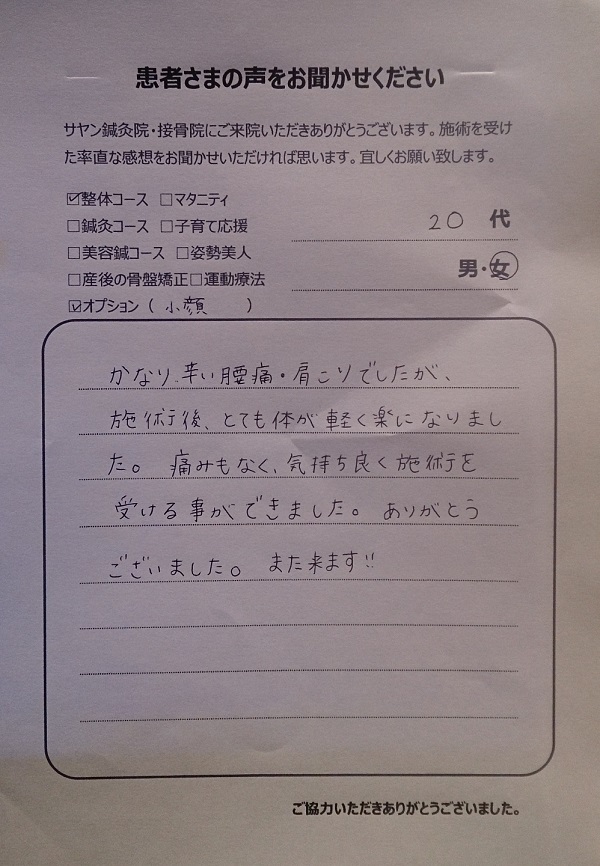 患者さまの声をお聞かせください
サヤン鍼灸院・接骨院にご来院いただきありがとうございます。施術を受け
た率直な感想をお聞かせいただければ思います。宜しくお願い致します。
☑整体コース □マタニティ
□鍼灸コース □子育て応援
20 代
□美容鍼コース □姿勢美人
男・女
□産後の骨盤矯正□運動療法
☑オプション（ 小顔 ）
かなり辛い腰痛・肩こりでしたが、
施術後、とても体が軽く楽になりまし
た。 痛みもなく、気持ち良く施術を
受ける事ができました。 ありがとう
ございました。 また来ます!!
ご協力いただきありがとうございました。